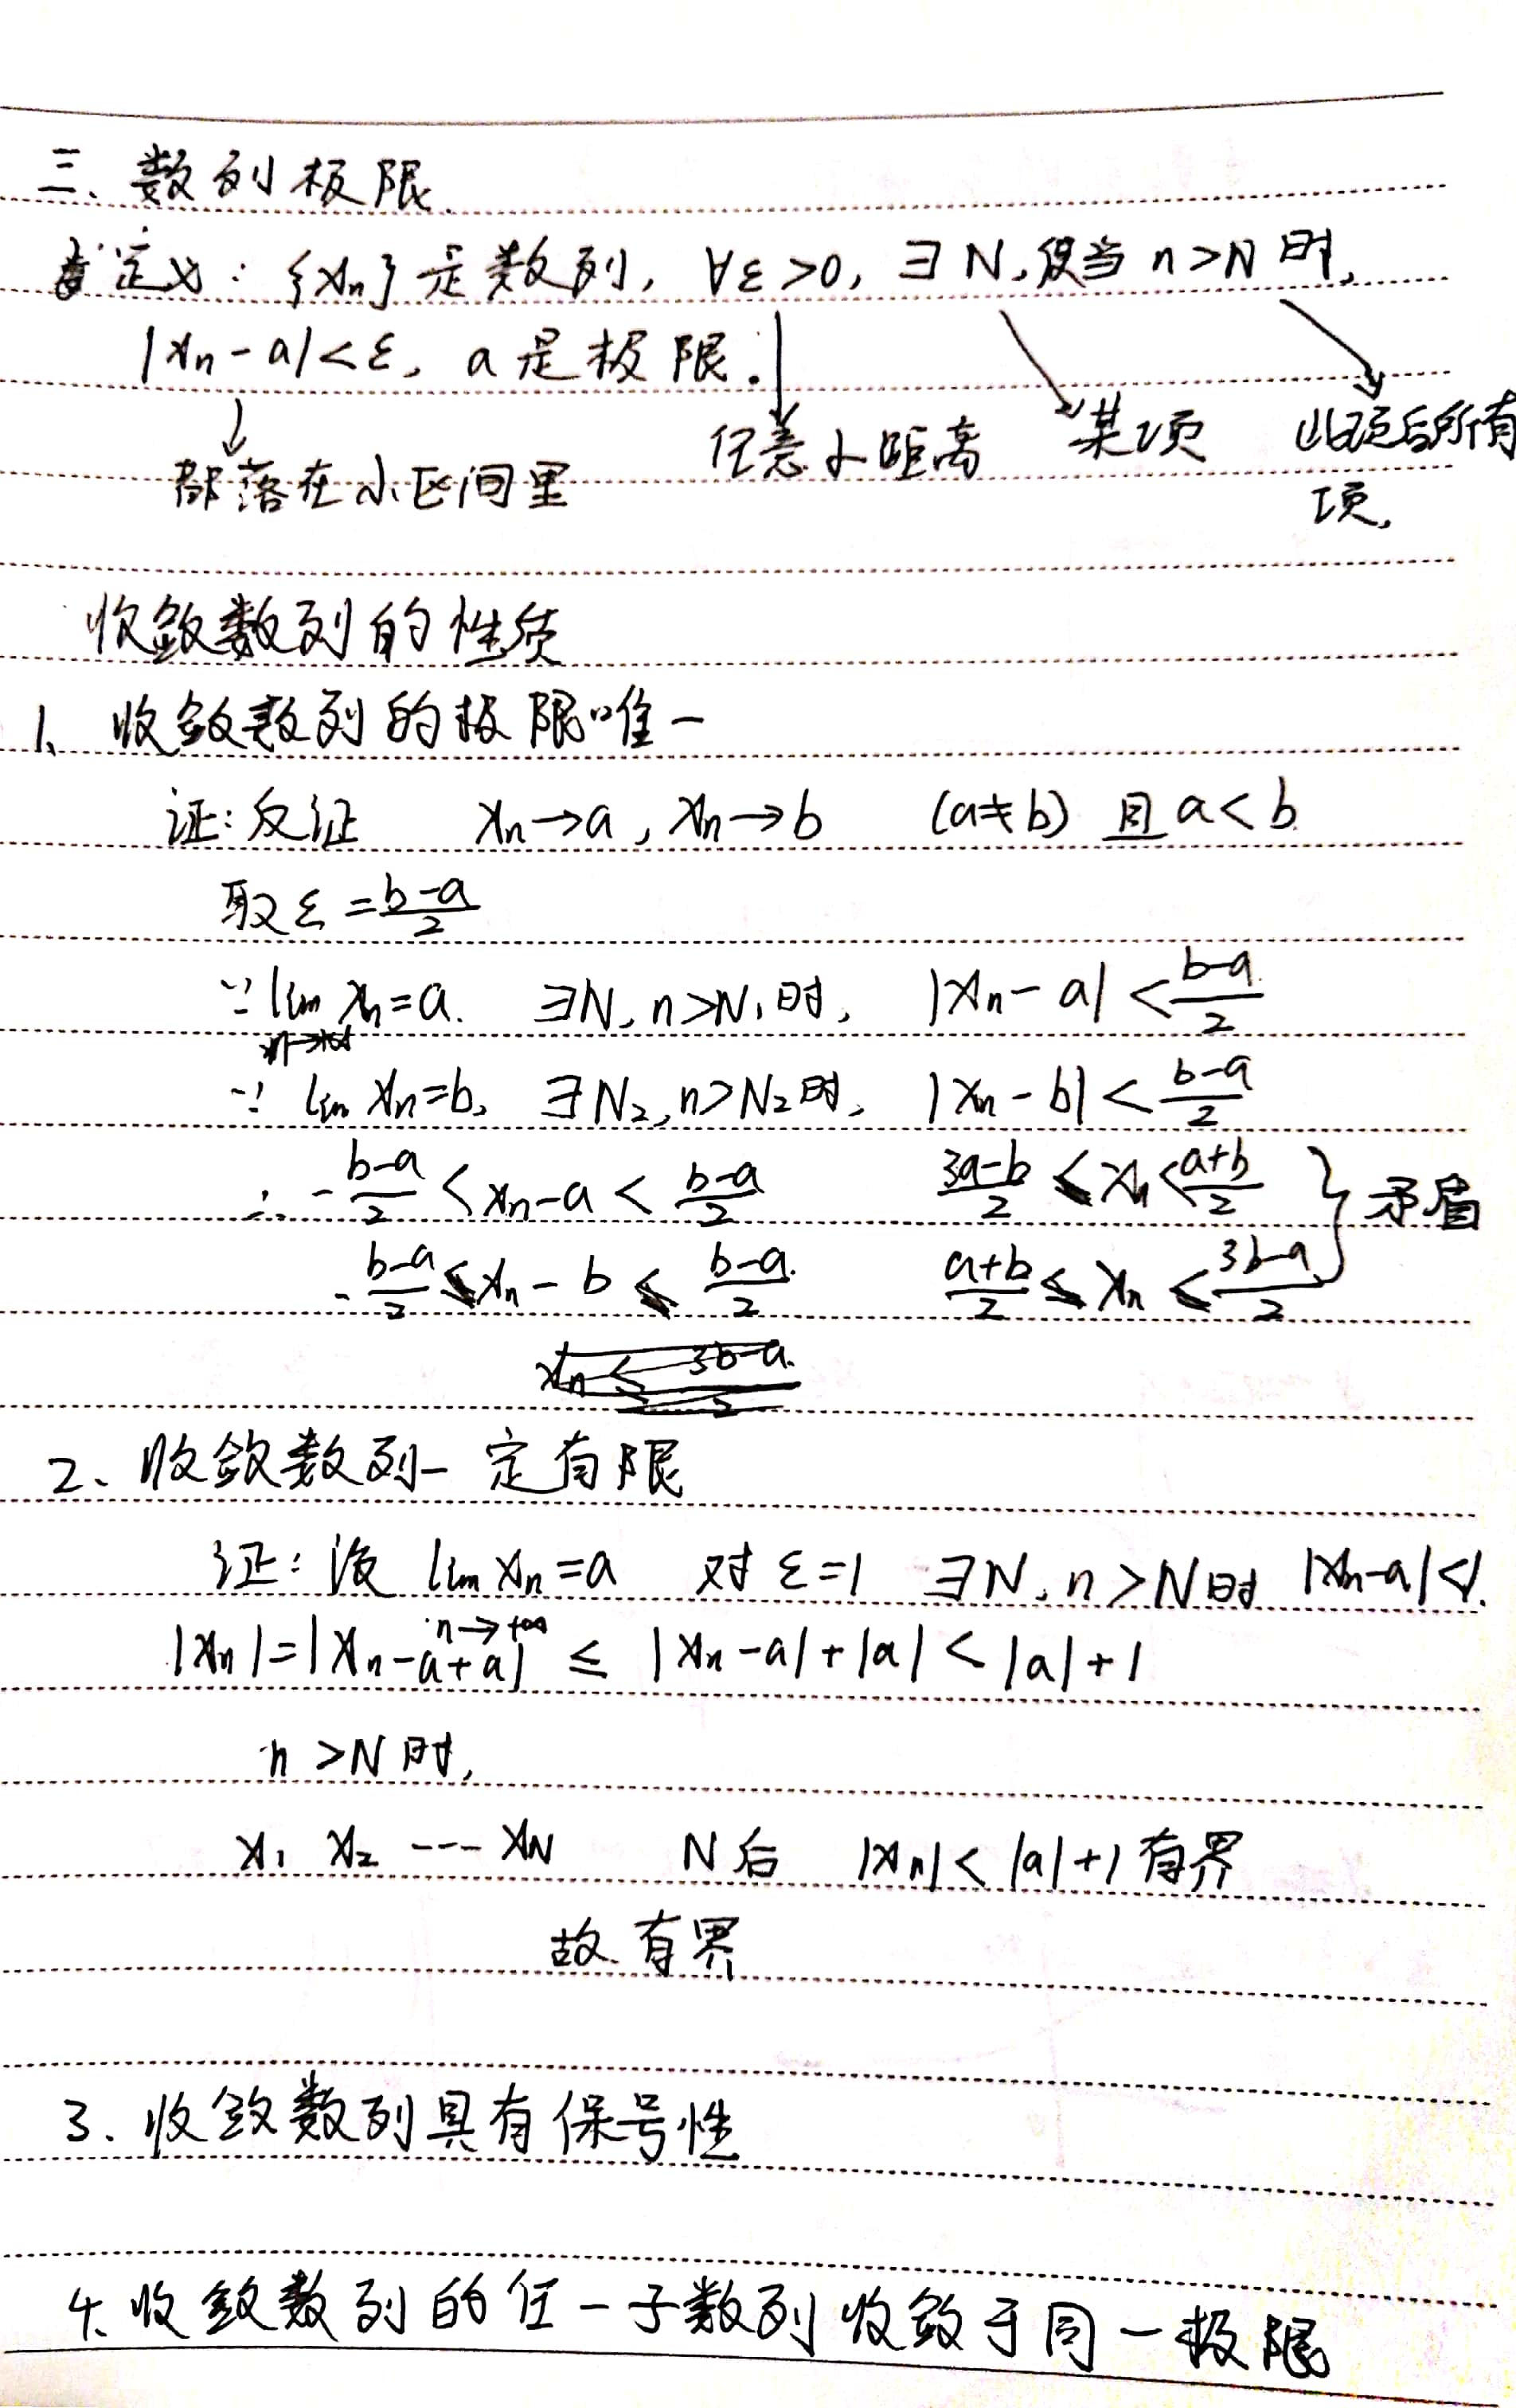 三、数列极限.
定义：{xn}是数列，∀ε>0，∃N，使当 n>N 时，
|xn-a|<ε，a是极限.
任意小距离 某项 此项后所有项.
都落在小区间里
收敛数列的性质
1、收敛数列的极限唯一
证：反证 xn→a，xn→b (a≠b) 且 a<b
取ε=(b-a)/2
∵ lim xn=a. ∃N, n>N₁时， |xn-a|<(b-a)/2
∵ lim xn=b, ∃N₂, n>N₂时， |xn-b|<(b-a)/2
∴ -(b-a)/2<xn-a<(b-a)/2 (3a-b)/2<xn<(a+b)/2 } 矛盾
-(b-a)/2<xn-b<(b-a)/2 (a+b)/2<xn<(3b-a)/2
2、收敛数列一定有限
证：设 lim n→+∞ xn=a 对 ε=1 ∃N, n>N时 |xn-a|<1.
|xn|=|xn-a+a| ≤ |xn-a|+|a|<|a|+1
n>N时，
x₁ x₂ --- xN N后 |xn|<|a|+1有界
故有界
3、收敛数列具有保号性
4、收敛数列的任一子数列收敛于同一极限